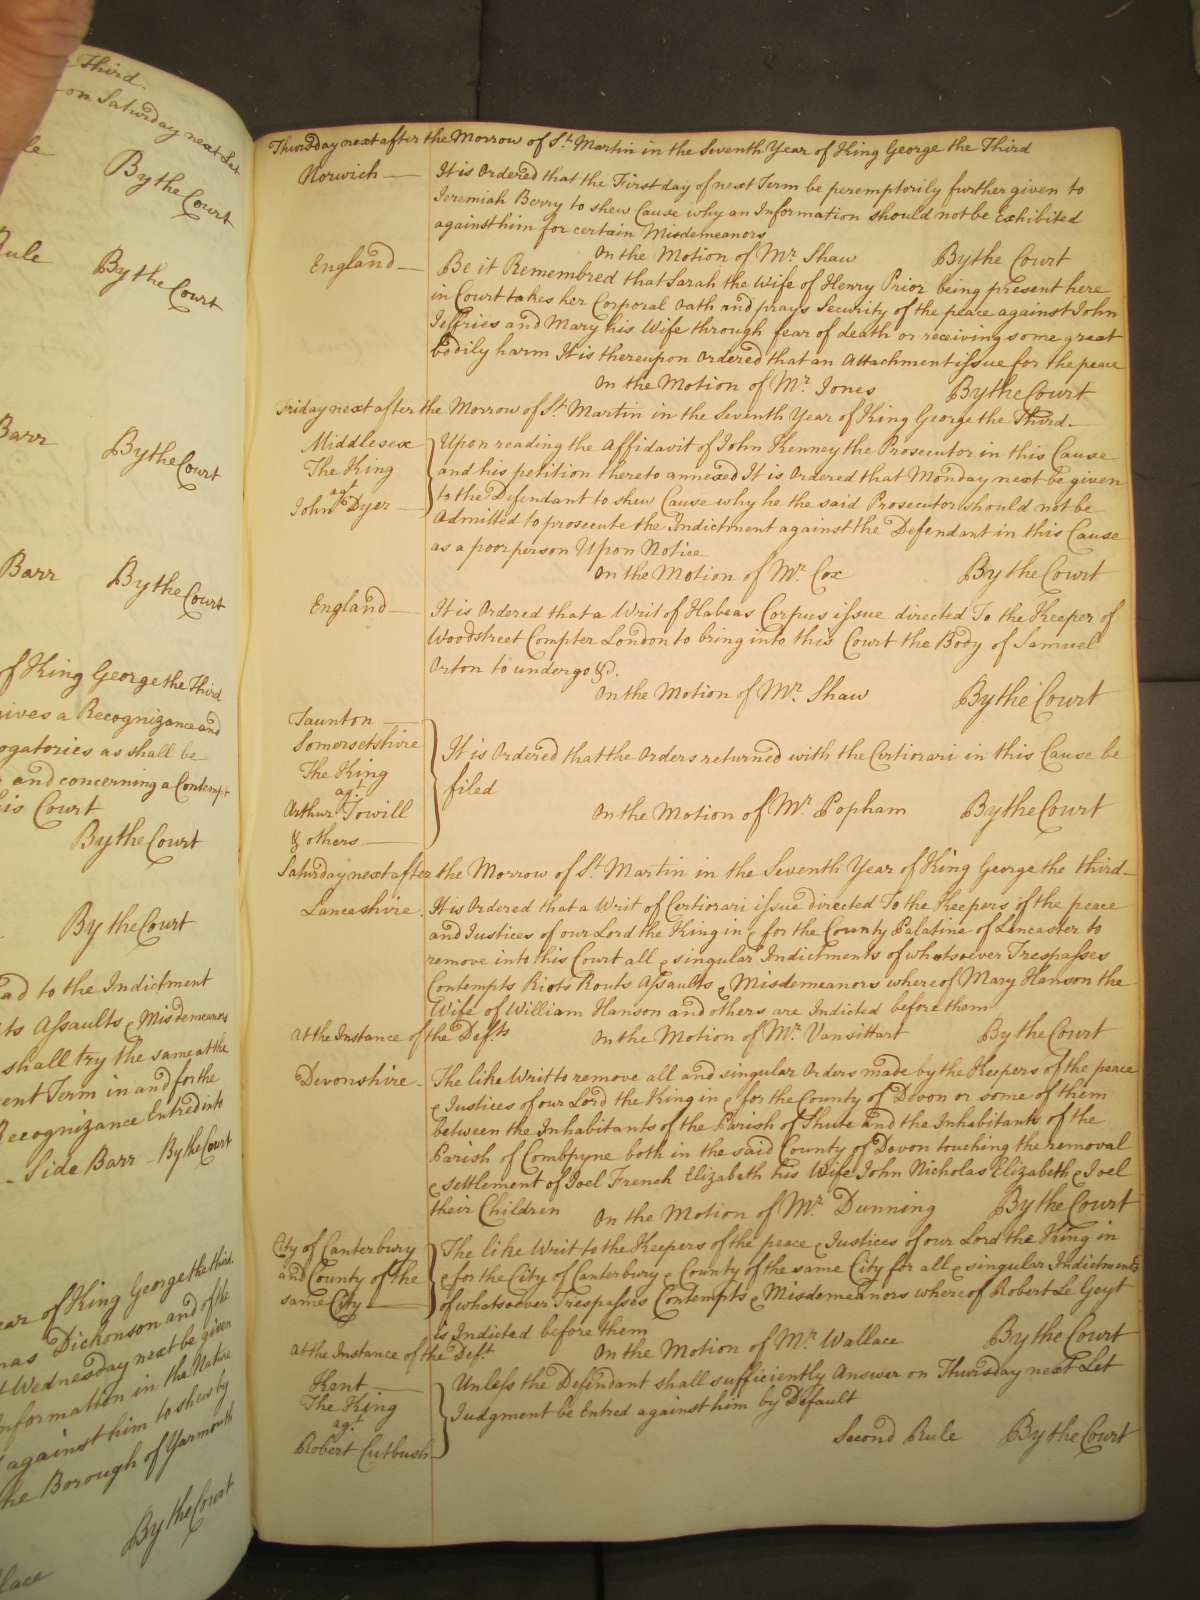 Third
on Saturday next Let
By the Court
Rule
By the Court
Barr
By the Court
Barr
By the Court
of King George the Third
gives a Recognizance and
ogatories as shall be
and concerning a Contempt
his Court
By the Court
By the Court
ad to the Indictment
ts Assaults & Misdemeanors
shall try the same at the
ent Term in and for the
Recognizance Entred into
Side Barr By the Court
ear of King George the third
mas Dickonson and of the
t Wednesday next be given
Information in the Nature
against him to shew by
the Borough of Yarmouth
By the Court
llace
Thursday next after the Morrow of St. Martin in the Seventh Year of King George the Third
Norwich
It is Ordered that the First day of next Term be peremptorily further given to
Jeremiah Berry to shew Cause why an Information should not be Exhibited
against him for certain Misdemeanors
On the Motion of Mr. Shaw By the Court
England
Be it Remembred that Sarah the Wife of Henry Prior being present here
in Court takes her Corporal Oath and prays Security of the peace against John
Jeffries and Mary his Wife through fear of death or receiving some great
bodily harm It is thereupon Ordered that an Attachment issue for the peace
On the Motion of Mr. Jones By the Court
Friday next after the Morrow of St. Martin in the Seventh Year of King George the Third.
Middlesex
The King
agt
John Dyer
Upon reading the Affidavit of John Kenney the Prosecutor in this Cause
and his petition thereto annexed It is Ordered that Monday next be given
to the Defendant to shew Cause why he the said Prosecutor should not be
Admitted to prosecute the Indictment against the Defendant in this Cause
as a poor person Upon Notice
On the Motion of Mr. Cox By the Court
England
It is Ordered that a Writ of Habeas Corpus issue directed To the Keeper of
Woodstreet Compter London to bring into this Court the Body of Samuel
Orton to undergo &c.
On the Motion of Mr. Shaw By the Court
Taunton
Somersetshire
The King
agt
Arthur Towill
& others
It is Ordered that the Orders returned with the Certiorari in this Cause be
filed
On the Motion of Mr. Popham By the Court
Saturday next after the Morrow of St. Martin in the Seventh Year of King George the third
Lancashire
It is Ordered that a Writ of Certiorari issue directed To the Keepers of the peace
and Justices of our Lord the King in & for the County Palatine of Lancaster to
remove into this Court all & singular Indictments of whatsoever Trespasses
Contempts Riots Routs Assaults & Misdemeanors whereof Mary Hanson the
Wife of William Hanson and others are Indicted before them
at the Instance of the Defts. On the Motion of Mr. Vansittart By the Court
Devonshire
The like Writ to remove all and singular Orders made by the Keepers of the peace
& Justices of our Lord the King in & for the County of Devon or some of them
between the Inhabitants of the Parish of Shute and the Inhabitants of the
Parish of Combpyne both in the said County of Devon touching the removal
& settlement of Joel French Elizabeth his Wife John Nicholas Elizabeth & Joel
their Children On the Motion of Mr. Dunning By the Court
City of Canterbury
and County of the
same City
The like Writ to the Keepers of the peace & Justices of our Lord the King in
& for the City of Canterbury & County of the same City for all & singular Indictments
of whatsoever Trespasses Contempts & Misdemeanors whereof Robert Le Geyt
is Indicted before them
at the Instance of the Deft. On the Motion of Mr. Wallace By the Court
Kent
The King
agt
Robert Cutbush
Unless the Defendant shall sufficiently Answer on Thursday next Let
Judgment be Entred against him by Default
Second Rule By the Court